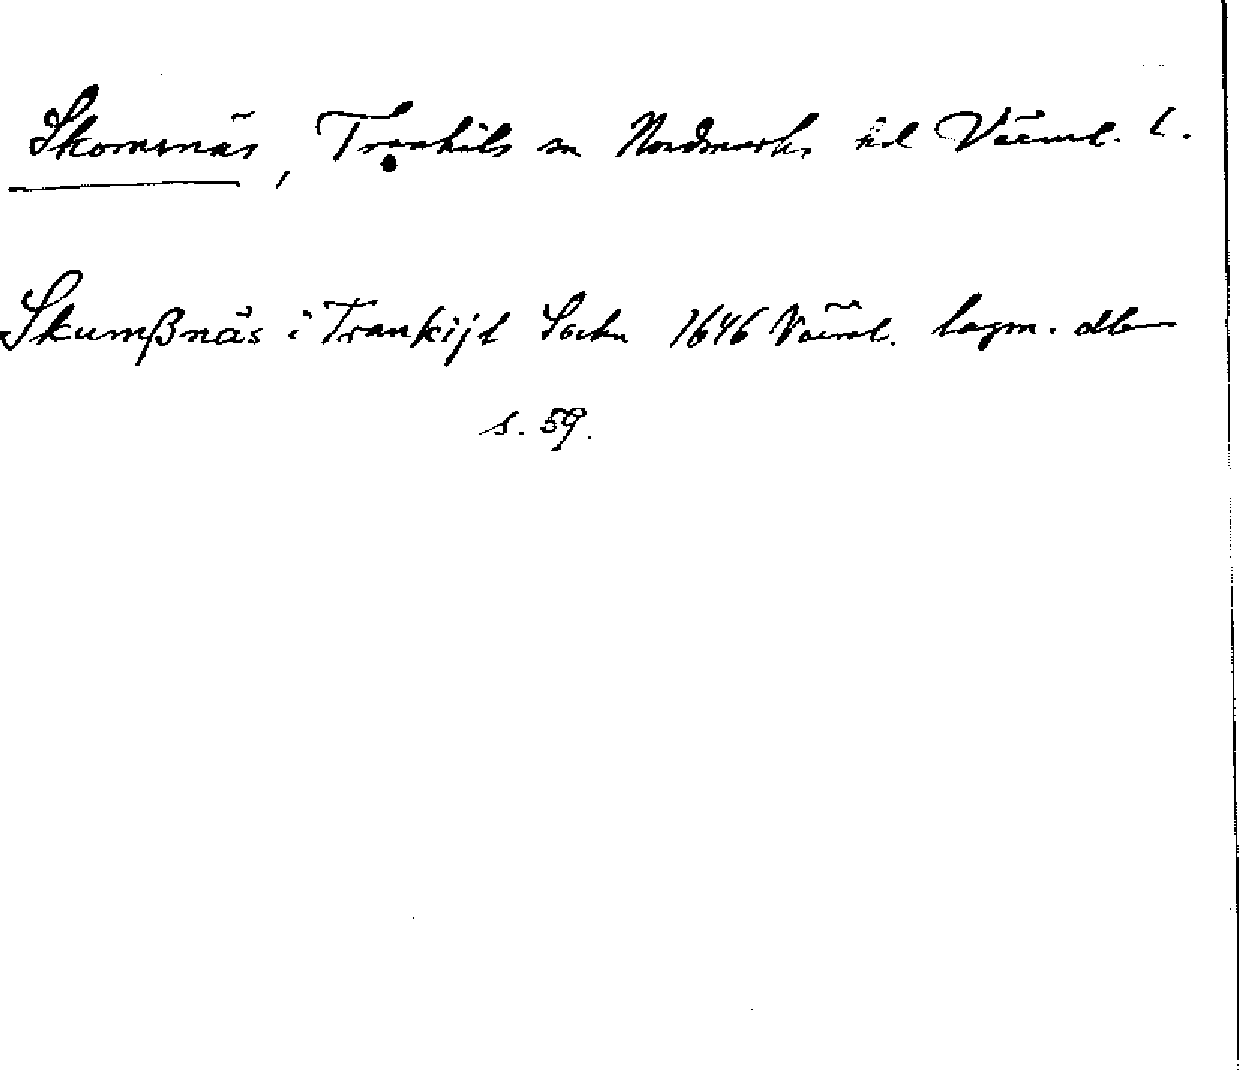 Skomsnäs, Trankils sn Nordmarks hd Värml. l.
Skumßnäs i Trankijl Sockn 1646 Värml. lagm. dlb
s. 59.